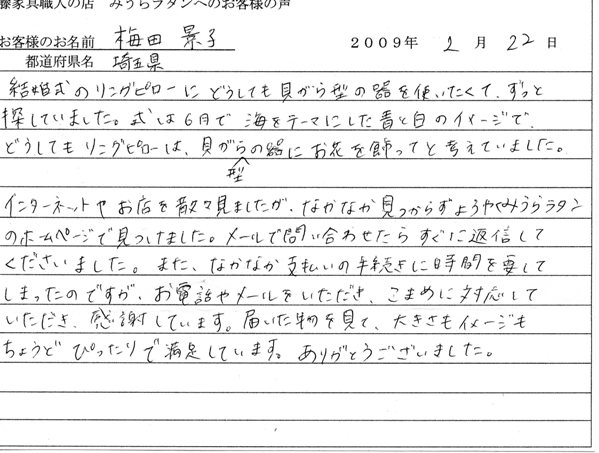 藤家具職人の店 みうらラタンへのお客様の声
お客様のお名前 梅田 景子 2009年 2月 22日
都道府県名 埼玉県
結婚式のリングピローにどうしても貝がら型の器を使いたくて、ずっと
探していました。式は6月で海をテーマにした青と白のイメージで、
どうしてもリングピローは、貝がらの器にお花を飾ってと考えていました。
型
インターネットやお店を散々見ましたが、なかなか見つからずようやくみうらラタン
のホームページで見つけました。メールで問い合わせたらすぐに返信して
くださいました。また、なかなか支払いの手続きに時間を要して
しまったのですが、お電話やメールをいただき、こまめに対応して
いただき、感謝しています。届いた物を見て、大きさもイメージも
ちょうどぴったりで満足しています。ありがとうございました。